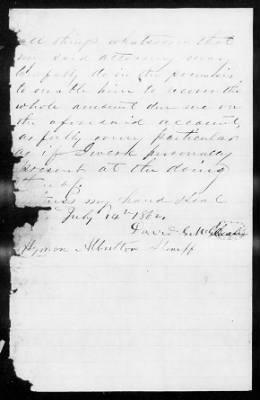 all things whatsoever that
my said attorney may
lawfully do in the premises
to enable him to receive the
whole amount due me on
the aforesaid account,
as fully every particular
as if I were personally
present at the doing
thereof
my hand & seal
July 14th 1862
David
Hymon Albutton Sheriff